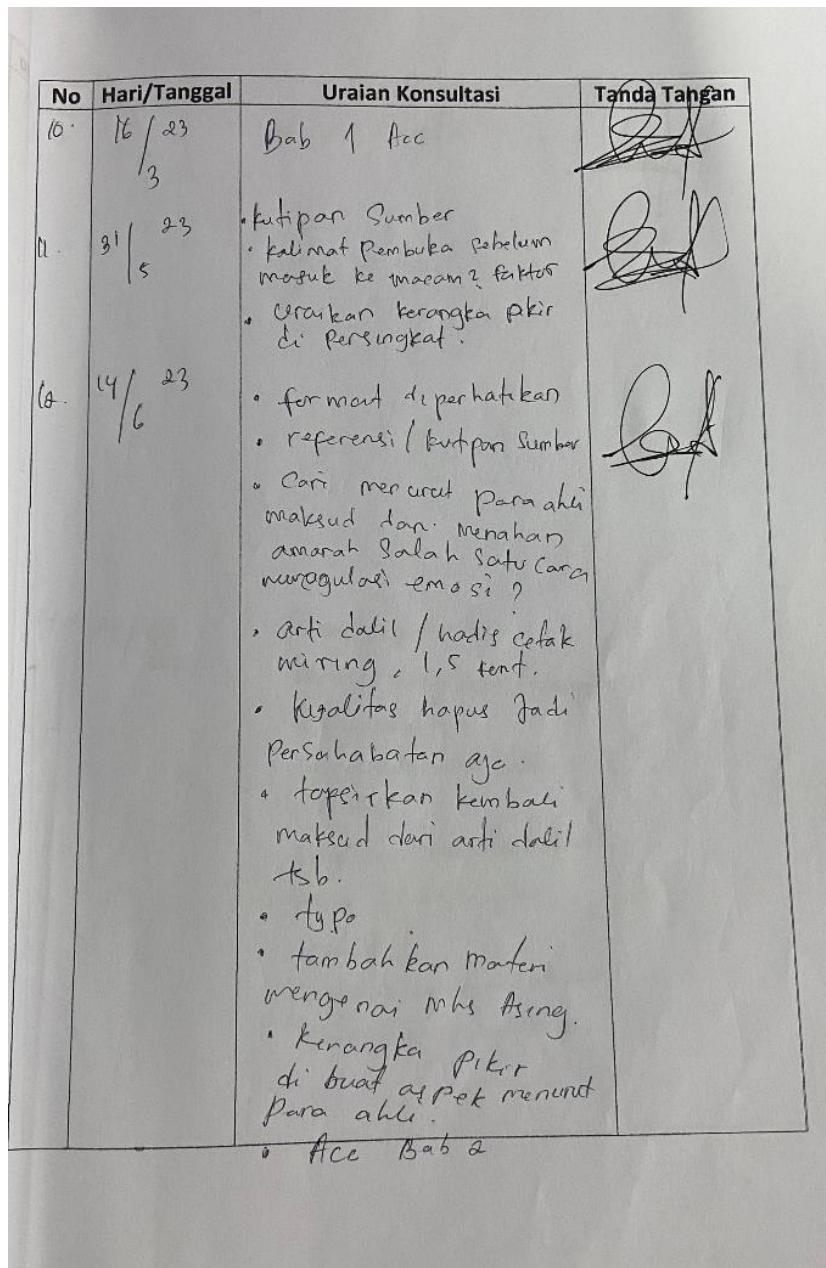 No Hari/Tanggal Uraian Konsultasi Tanda Tangan
10. 16/3 23 Bab 1 Acc
11. 31/5 23 • kutipan Sumber
• kalimat Pembuka sebelum
masuk ke macam2 faktor
• uraikan kerangka pkir
di Persingkat.
12. 14/6 23 • format diperhatikan
• referensi / kutipan Sumber
• Cari menurut para ahli
maksud dari menahan
amarah Salah Satu Cara
meregulasi emosi ?
• arti dalil / hadis cetak
miring, 1,5
• kualitas hapus Jadi
Persahabatan aja.
• tafsirkan kembali
maksud dari arti dalil
tsb.
• typo
• tambahkan materi
mengenai Mhs Asing.
• kerangka pikir
di buat aspek menurut
Para ahli.
• Acc Bab 2